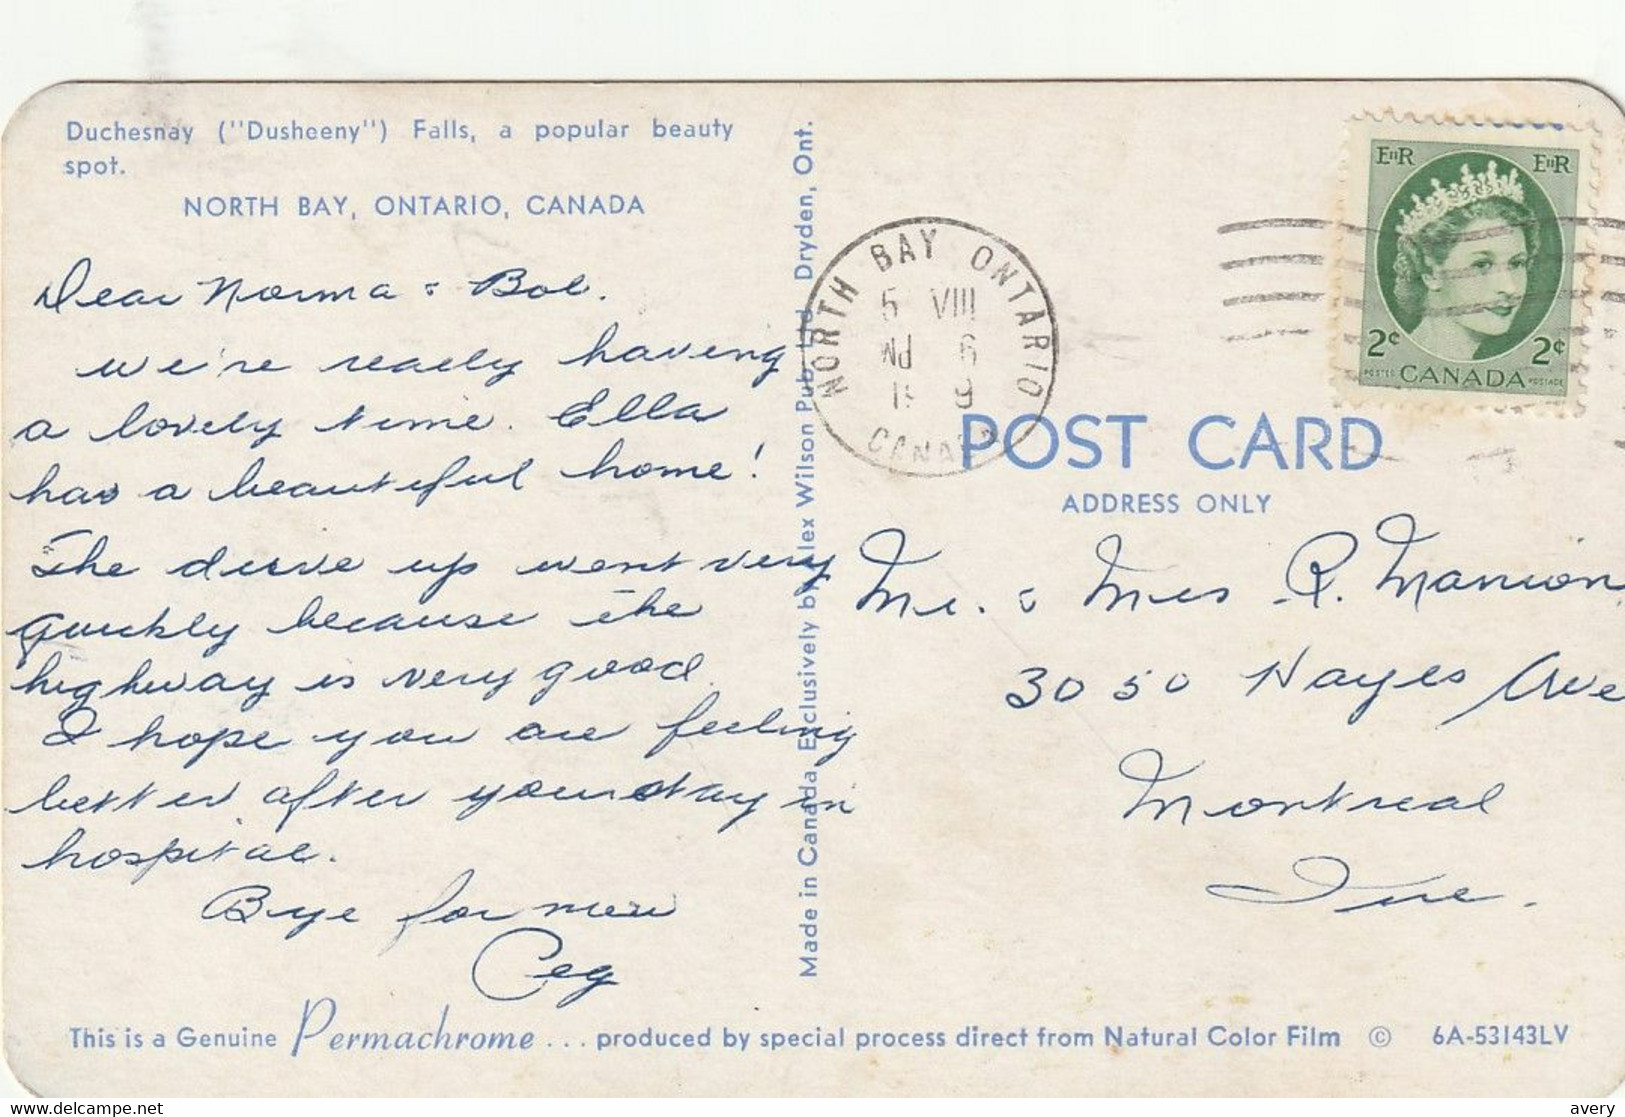 Duchesnay ("Dusheeny") Falls, a popular beauty
spot.
NORTH BAY, ONTARIO, CANADA
Dear Norma & Bob.
We're really having
a lovely time. Ella
has a beautiful home!
The drive up went very
quickly because the
highway is very good.
I hope you are feeling
better after your stay in
hospital.
Bye for now
Peg
Made in Canada Exclusively by Alex Wilson Pub. Ltd. Dryden, Ont.
NORTH BAY ONTARIO
VIII
PM 6
CANADA
EIIR EIIR
2¢ 2¢
POSTES CANADA POSTAGE
POST CARD
ADDRESS ONLY
Mr. & Mrs R. Manion
3050 Hayes Ave
Montreal
Que.
This is a Genuine Permachrome ... produced by special process direct from Natural Color Film © 6A-53143LV
delcampe.net
avery